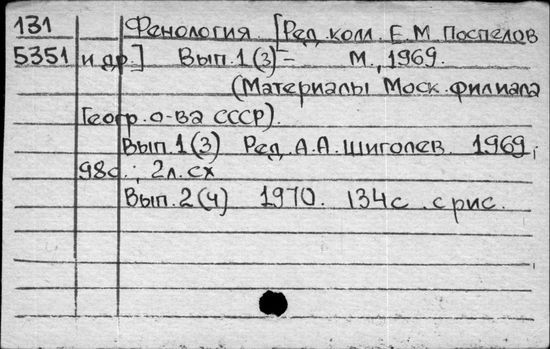 131 Фенология. [Ред. колл. Е.М. Поспелов
5351 и др.] Вып. 1(3)= М., 1969.
(Материалы Моск. филиала
Геогр. о-ва СССР).
Вып. 1(3) Ред. А.А. Шиголев. 1969,
98с.; 2л.сх
Вып. 2(4) 1970. 134с. с рис.